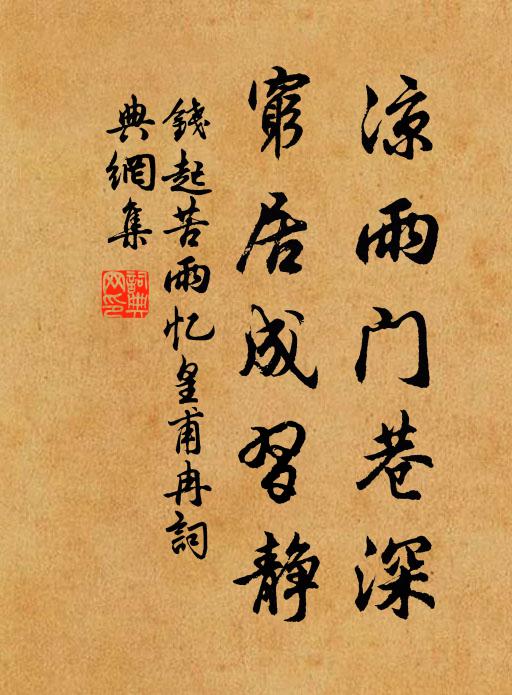 凉雨门巷深
窮居成習静
錢起苦雨忆皇甫冉詞
典網集
詞典網印